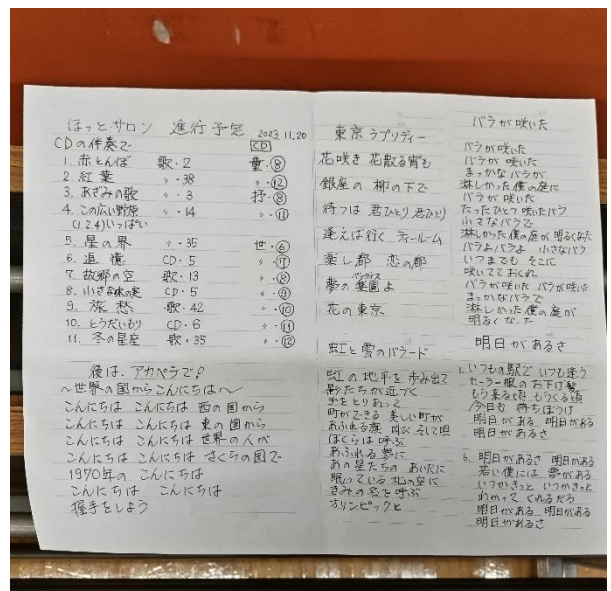 ほっとサロン 進行予定 2023.11.20
CDの伴奏で CD
1. 赤とんぼ 歌・2 童・⑧
2. 紅葉 〃・38 〃・⑫
3. あざみの歌 〃・3 抒・⑧
4. この広い野原 〃・14 〃・⑪
(1.2.4)いっぱい
5. 星の界 〃・35 世・⑥
6. 追憶 CD・5 〃・⑦
7. 故郷の空 歌・13 〃・⑧
8. 小さな木の実 CD・5 〃・⑨
9. 旅愁 歌・42 〃・⑩
10. とうだいもり CD・6 〃・⑪
11. 冬の星座 歌・35 〃・⑫
後は、アカペラで♪
〜世界の国からこんにちは〜
こんにちは こんにちは 西の国から
こんにちは こんにちは 東の国から
こんにちは こんにちは 世界の人が
こんにちは こんにちは さくらの国で
1970年の こんにちは
こんにちは こんにちは
握手をしよう
東京ラプソディー
花咲き 花散る宵も
銀座の 柳の下で
待つは 君ひとり 君ひとり
逢えば行く ティールーム
楽し都 恋の都
夢の楽園よ
パラダイス
花の東京
虹と雪のバラード
虹の地平を 歩み出て
影たちが近づく
手をとりあって
町ができる 美しい町が
あふれる旗 叫び そして唄
ぼくらは呼ぶ
あふれる夢に
あの星たちの あいだに
眠っている 北の空に
きみの名を呼ぶ
オリンピックと
バラが咲いた
バラが咲いた
バラが咲いた
まっかなバラが
淋しかった僕の庭に
バラが咲いた
たったひとつ咲いたバラ
小さなバラで
淋しかった僕の庭が明るくなった
バラよバラよ 小さなバラ
いつまでも そこに
咲いてておくれ
バラが咲いた バラが咲いた
まっかなバラで
淋しかった僕の庭が
明るくなった
明日があるさ
1. いつもの駅で いつも逢う
セーラー服の お下げ髪
もう来る頃 もうくる頃
今日も 待ちぼうけ
明日がある 明日がある
明日があるさ
6. 明日があるさ 明日がある
若い僕には 夢がある
いつかきっと いつかきっと
わかって くれるだろ
明日がある 明日がある
明日があるさ